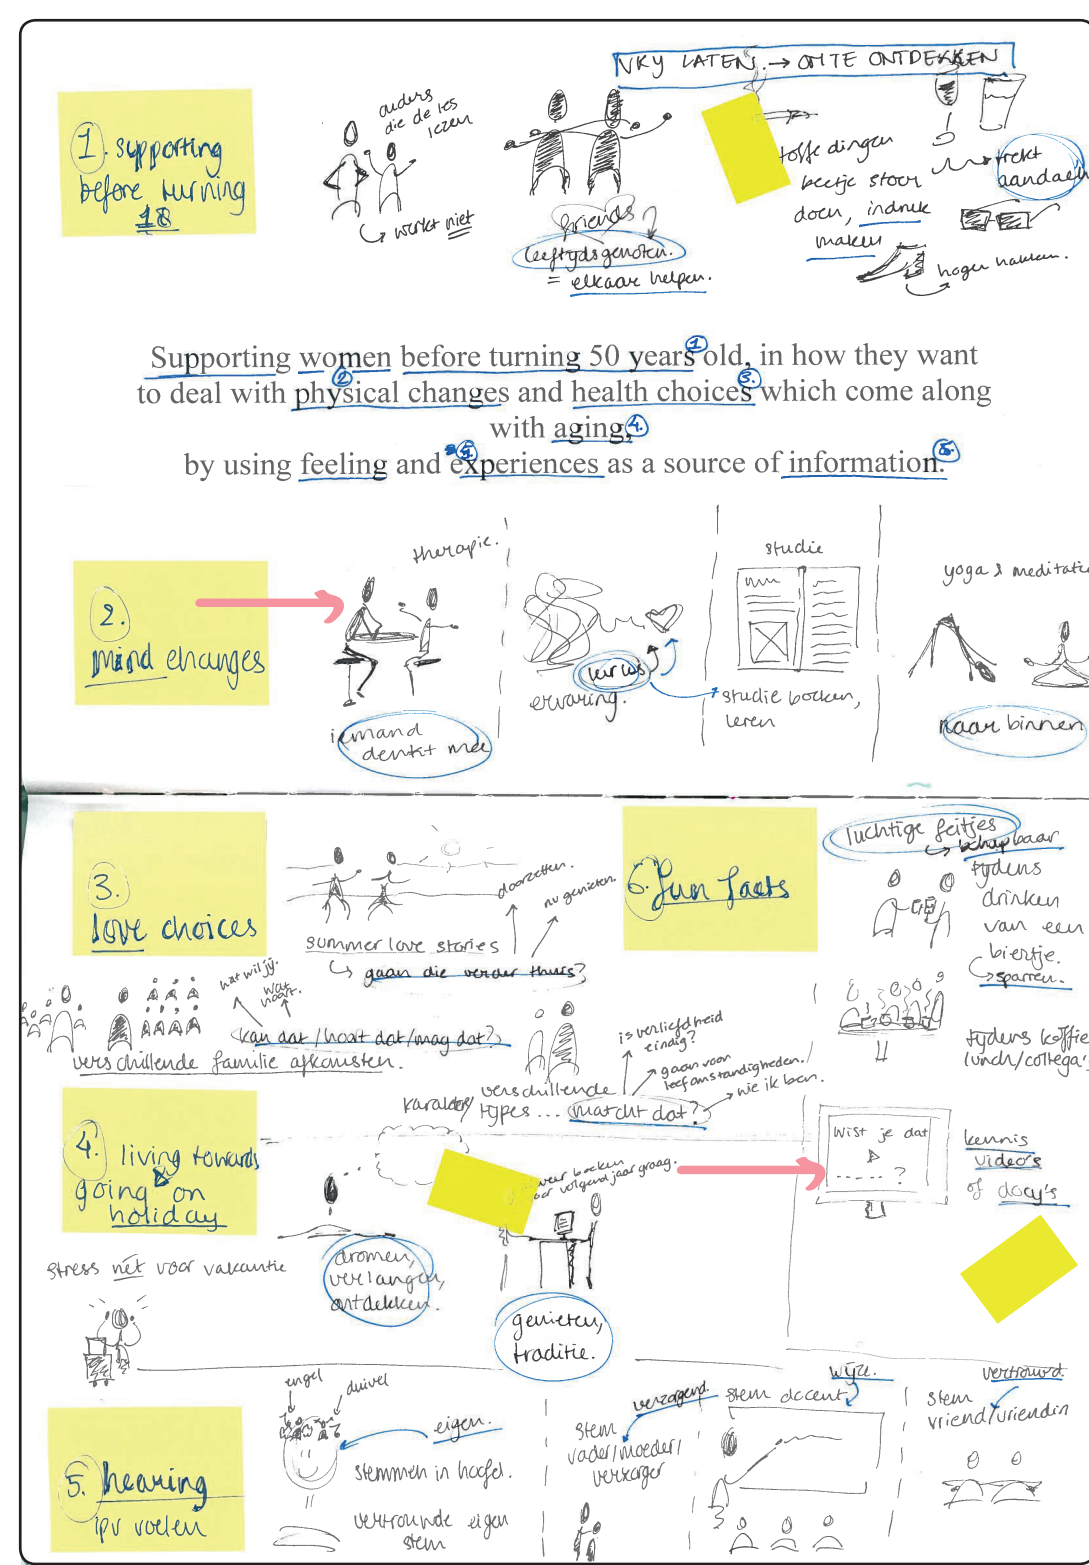 VRY LATEN → OM TE ONTDEKKEN
1. supporting
before turning
18
ouders
die de les
lezen
werkt niet
friends
leeftijdsgenoten.
= elkaar helpen.
toffe dingen
beetje stoer
doen, indruk
maken
trekt
aandacht
hoger hakken.
Supporting women before turning 50 years 1 old, in how they want
to deal with physical 2 changes and health choices 3. which come along
with aging, 4.
by using feeling and 5. experiences as a source of information. 6.
2.
mind changes
therapie.
iemand
denkt mee
cursus
ervaring.
studie
studie boeken,
leren
yoga & meditatie
naar binnen
3.
love choices
doorzetten.
nu genieten.
summer love stories
gaan die verder thuis?
wat wil jij.
wat
hoort.
kan dat / hoort dat / mag dat?
verschillende familie afkomsten.
is verliefdheid
eindig?
gaan voor
leefomstandigheden.
wie ik ben.
karakter/
verschillende
types... matcht dat?
6. fun facts
luchtige feitjes
behapbaar
tijdens
drinken
van een
biertje.
sparren.
tijdens koffie
lunch/collega's
4. living towards
going on
holiday
stress nét voor vakantie
dromen,
verlangen,
ontdekken.
weer boeken
voor volgend jaar graag.
genieten,
traditie.
Wist je dat
..... ?
kennis
video's
of docu's
5. hearing
ipv voelen
engel
duivel
eigen.
stemmen in hoofd.
vertrouwde eigen
stem
verzorgend.
stem
vader/moeder/
verzorger
wijze.
stem docent
vertrouwd.
stem
vriend/vriendin